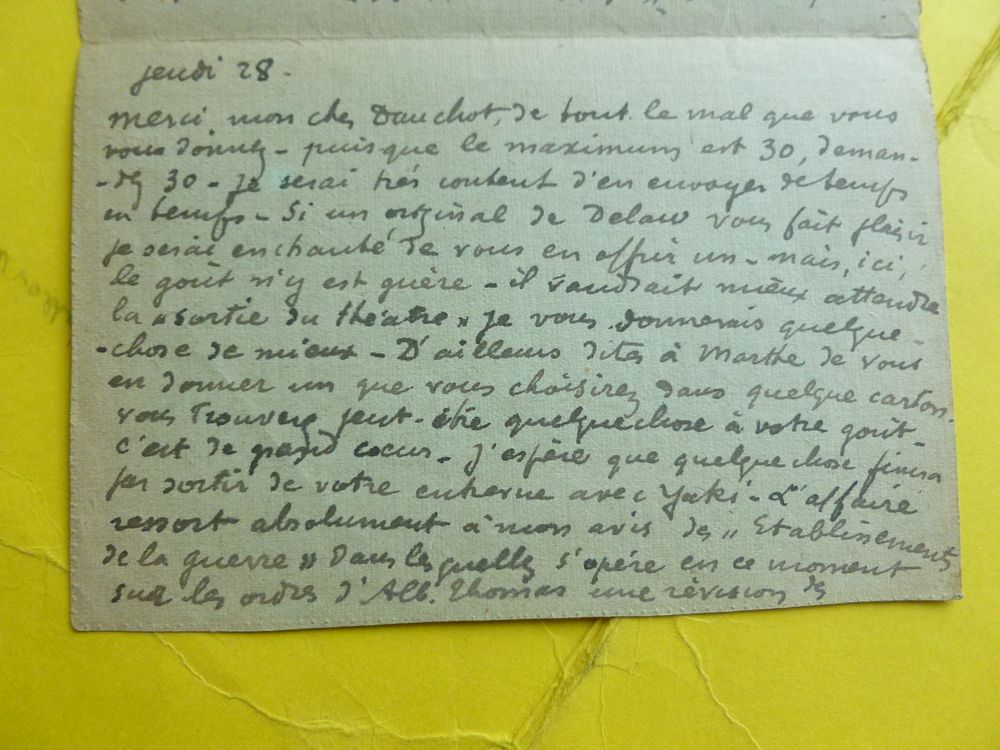 jeudi 28 -
merci mon cher Dauchot, de tout le mal que vous
vous donnez - puisque le maximum est 30, deman-
-dez 30 - je serai très content d'en envoyer de temps
en temps - Si un original de Delaw vous fait plaisir
je serai enchanté de vous en offrir un - mais, ici,
le goût n'y est guère - il vaudrait mieux attendre
la "sortie du théatre" je vous donnerais quelque-
-chose de mieux - D'ailleurs dites à Marthe de vous
en donner un que vous choisirez dans quelque carton.
vous trouverez peut-être quelquechose à votre goût -
c'est de grand cœur - j'espère que quelque chose finira
par sortir de votre entrevue avec Yaki - L'affaire
ressort absolument à mon avis des "Etablissements
de la guerre" dans lesquelles s'opère en ce moment
sur les ordres d'Alb. Thomas une révision des